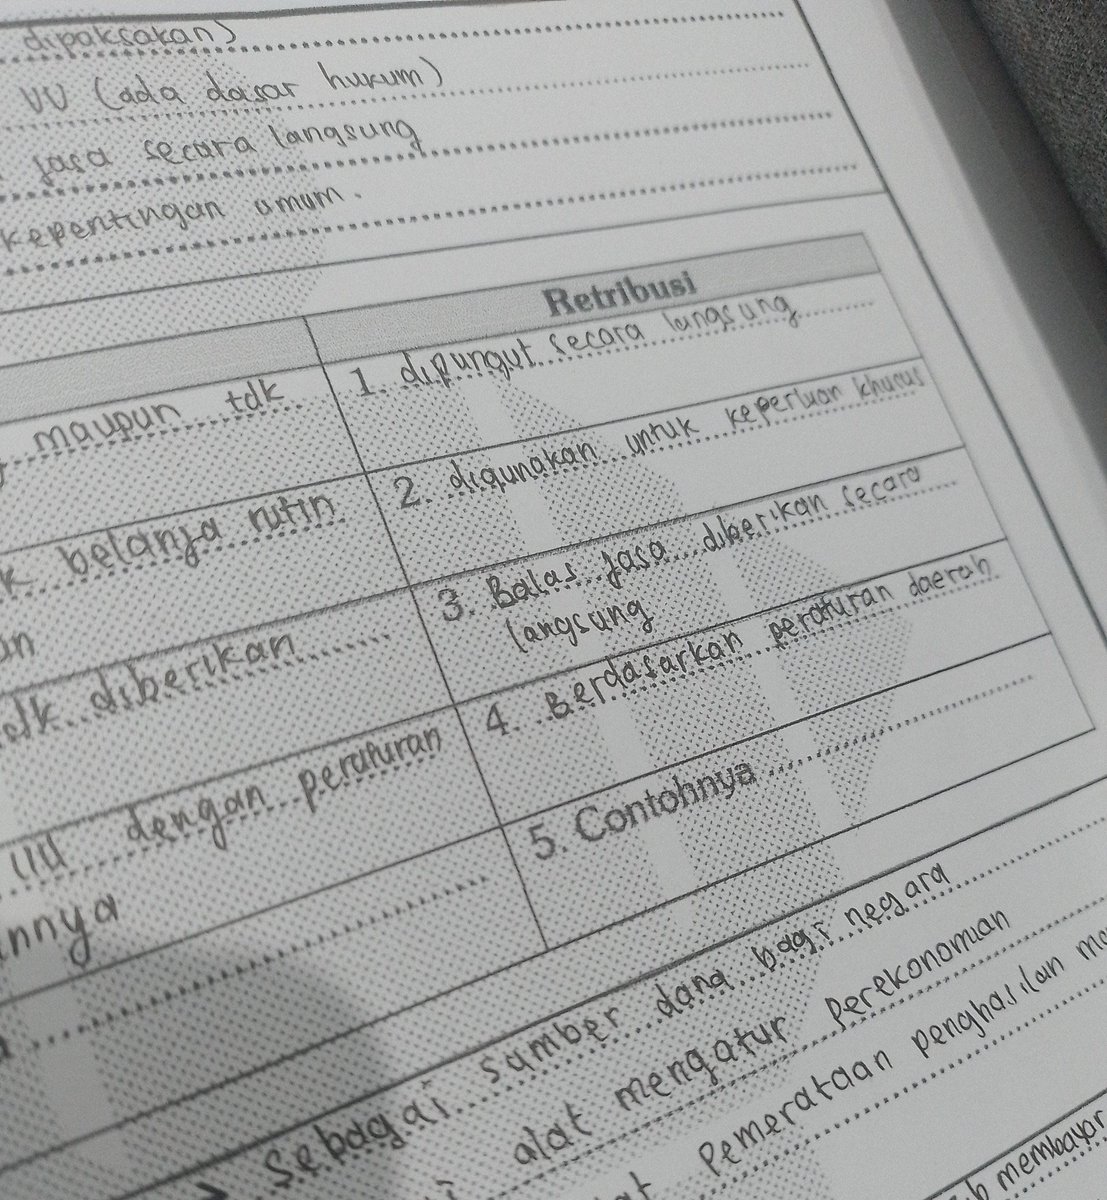 dipaksakan)
UU (ada dasar hukum)
jasa secara langsung
kepentingan umum.
Retribusi
maupun tdk
1. dipungut secara langsung
belanja rutin
2. digunakan untuk keperluan khusus
tdk diberikan
3. Balas jasa diberikan secara
langsung
UU dengan peraturan
4. Berdasarkan peraturan daerah
5. Contohnya
Sebagai sumber dana bagi negara
alat mengatur perekonomian
Pemerataan penghasilan
membayar